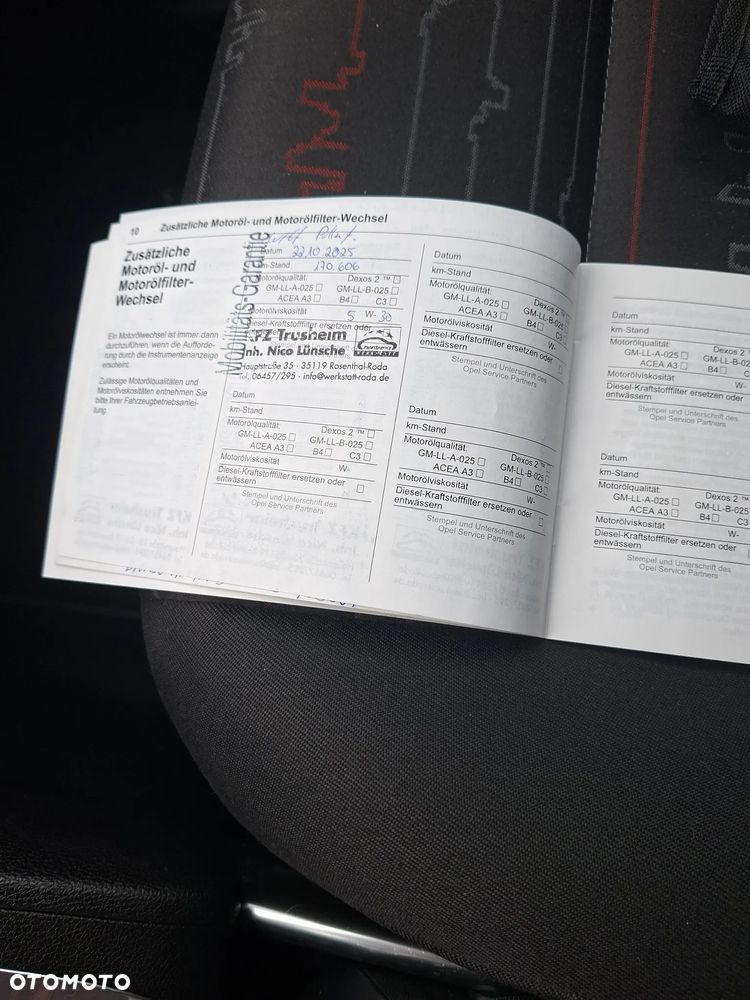 10 Zusätzliche Motoröl- und Motorölfilter-Wechsel
Zusätzliche
Motoröl- und
Motorölfilter-
Wechsel
Ein Motorölwechsel ist immer dann
durchzuführen, wenn die Aufforde-
rung durch die Instrumentenanzeige
erscheint.
Zulässige Motorölqualitäten und
Motorölviskositäten entnehmen Sie
bitte Ihrer Fahrzeugbetriebsanlei-
tung.
Mobilitäts-Garantie
Datum 22.10 2025
km-Stand 170.606
Motorölqualität: Dexos 2 ™
GM-LL-A-025 GM-LL-B-025
ACEA A3 B4 C3
Motorölviskosität 5 W- 30
Diesel-Kraftstofffilter ersetzen oder
KFZ Trusheim
Inh. Nico Lünsche
Hauptstraße 35 · 35119 Rosenthal-Roda
Tel. 06457/295 · info@werkstatt-roda.de
Datum
km-Stand
Motorölqualität: Dexos 2 ™
GM-LL-A-025 GM-LL-B-025
ACEA A3 B4 C3
Motorölviskosität W-
Diesel-Kraftstofffilter ersetzen oder
entwässern
Stempel und Unterschrift des
Opel Service Partners
Datum
km-Stand
Motorölqualität: Dexos 2 ™
GM-LL-A-025 GM-LL-B-025
ACEA A3 B4 C3
Motorölviskosität W-
Diesel-Kraftstofffilter ersetzen oder
entwässern
Stempel und Unterschrift des
Opel Service Partners
Datum
km-Stand
Motorölqualität: Dexos 2 ™
GM-LL-A-025 GM-LL-B-025
ACEA A3 B4 C3
Motorölviskosität W-
Diesel-Kraftstofffilter ersetzen oder
entwässern
Stempel und Unterschrift des
Opel Service Partners
Datum
km-Stand
Motorölqualität: Dexos 2 ™
GM-LL-A-025 GM-LL-B
ACEA A3 B4 C
Motorölviskosität W-
Diesel-Kraftstofffilter ersetzen oder
entwässern
Stempel und Unterschrift des
Opel Service Partners
Datum
km-Stand
Motorölqualität: Dexos 2
GM-LL-A-025 GM-LL-B
ACEA A3 B4 C
Motorölviskosität W-
Diesel-Kraftstofffilter ersetzen oder
entwässern
Stempel und Unterschrift des
Opel Service Partners
OTOMOTO